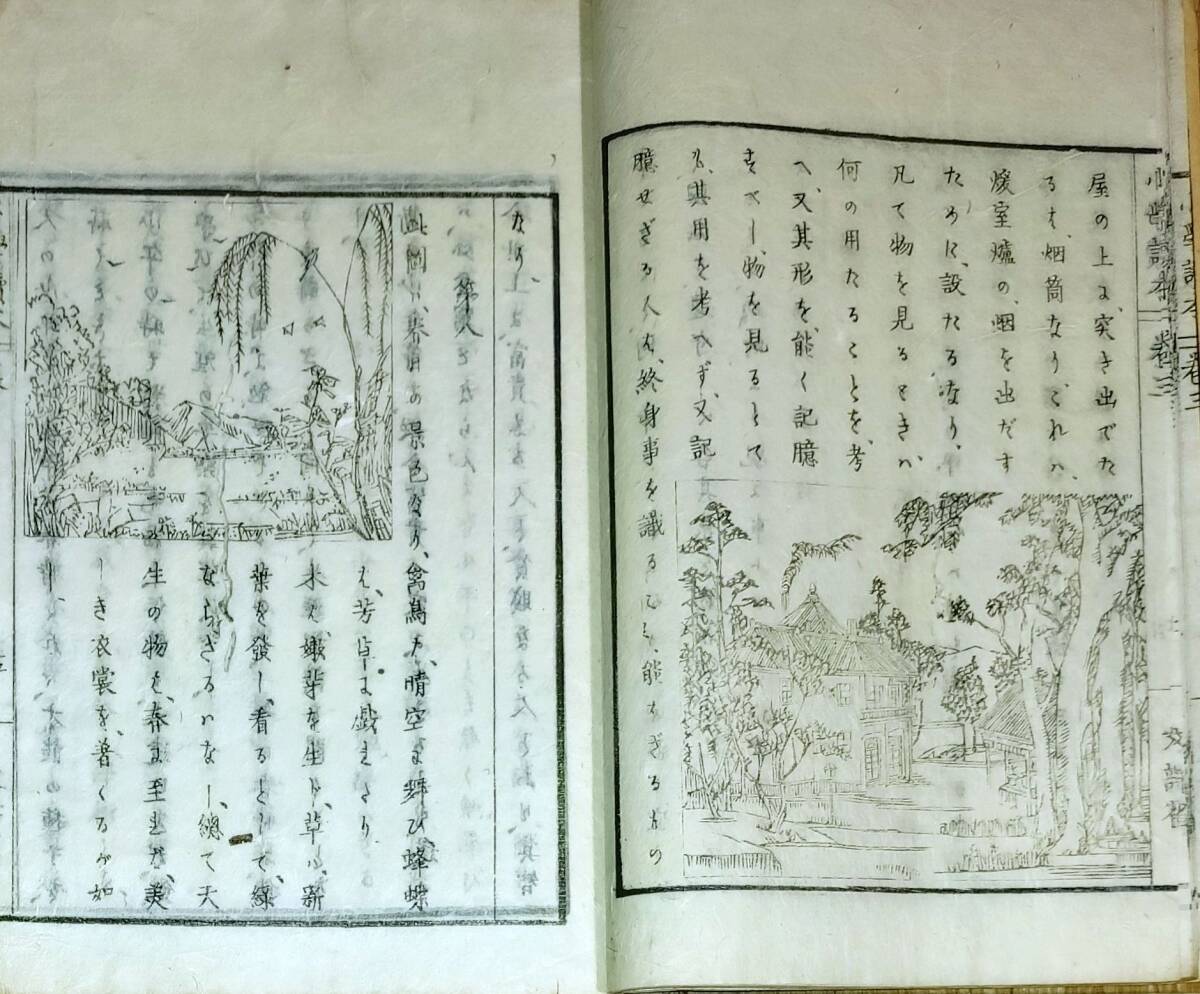 小學讀本 卷三
屋の上に、突き出でた
るは、烟筒なり、これハ、
煖室爐の、烟を出だす
ために、設たるなり、
凡て物を見るときハ、
何の用たることを、考
へ、又其形を、能く記臆
すべし、物を見るとて
も、其用を考へず、又記
臆せざる人ハ、終身事を識ること、能はざるもの
なり、
第八
此圖ハ、春月の景色なり、禽鳥ハ、晴空に舞ひ蜂蝶
は、芳草に戯まさり、
木は嫩芽を生じ、草ハ、新
葉を發し、看るとして、緑
ならざるハなし、總て天
生の物は、春に至れば、美
しき衣裳を、著くるが如